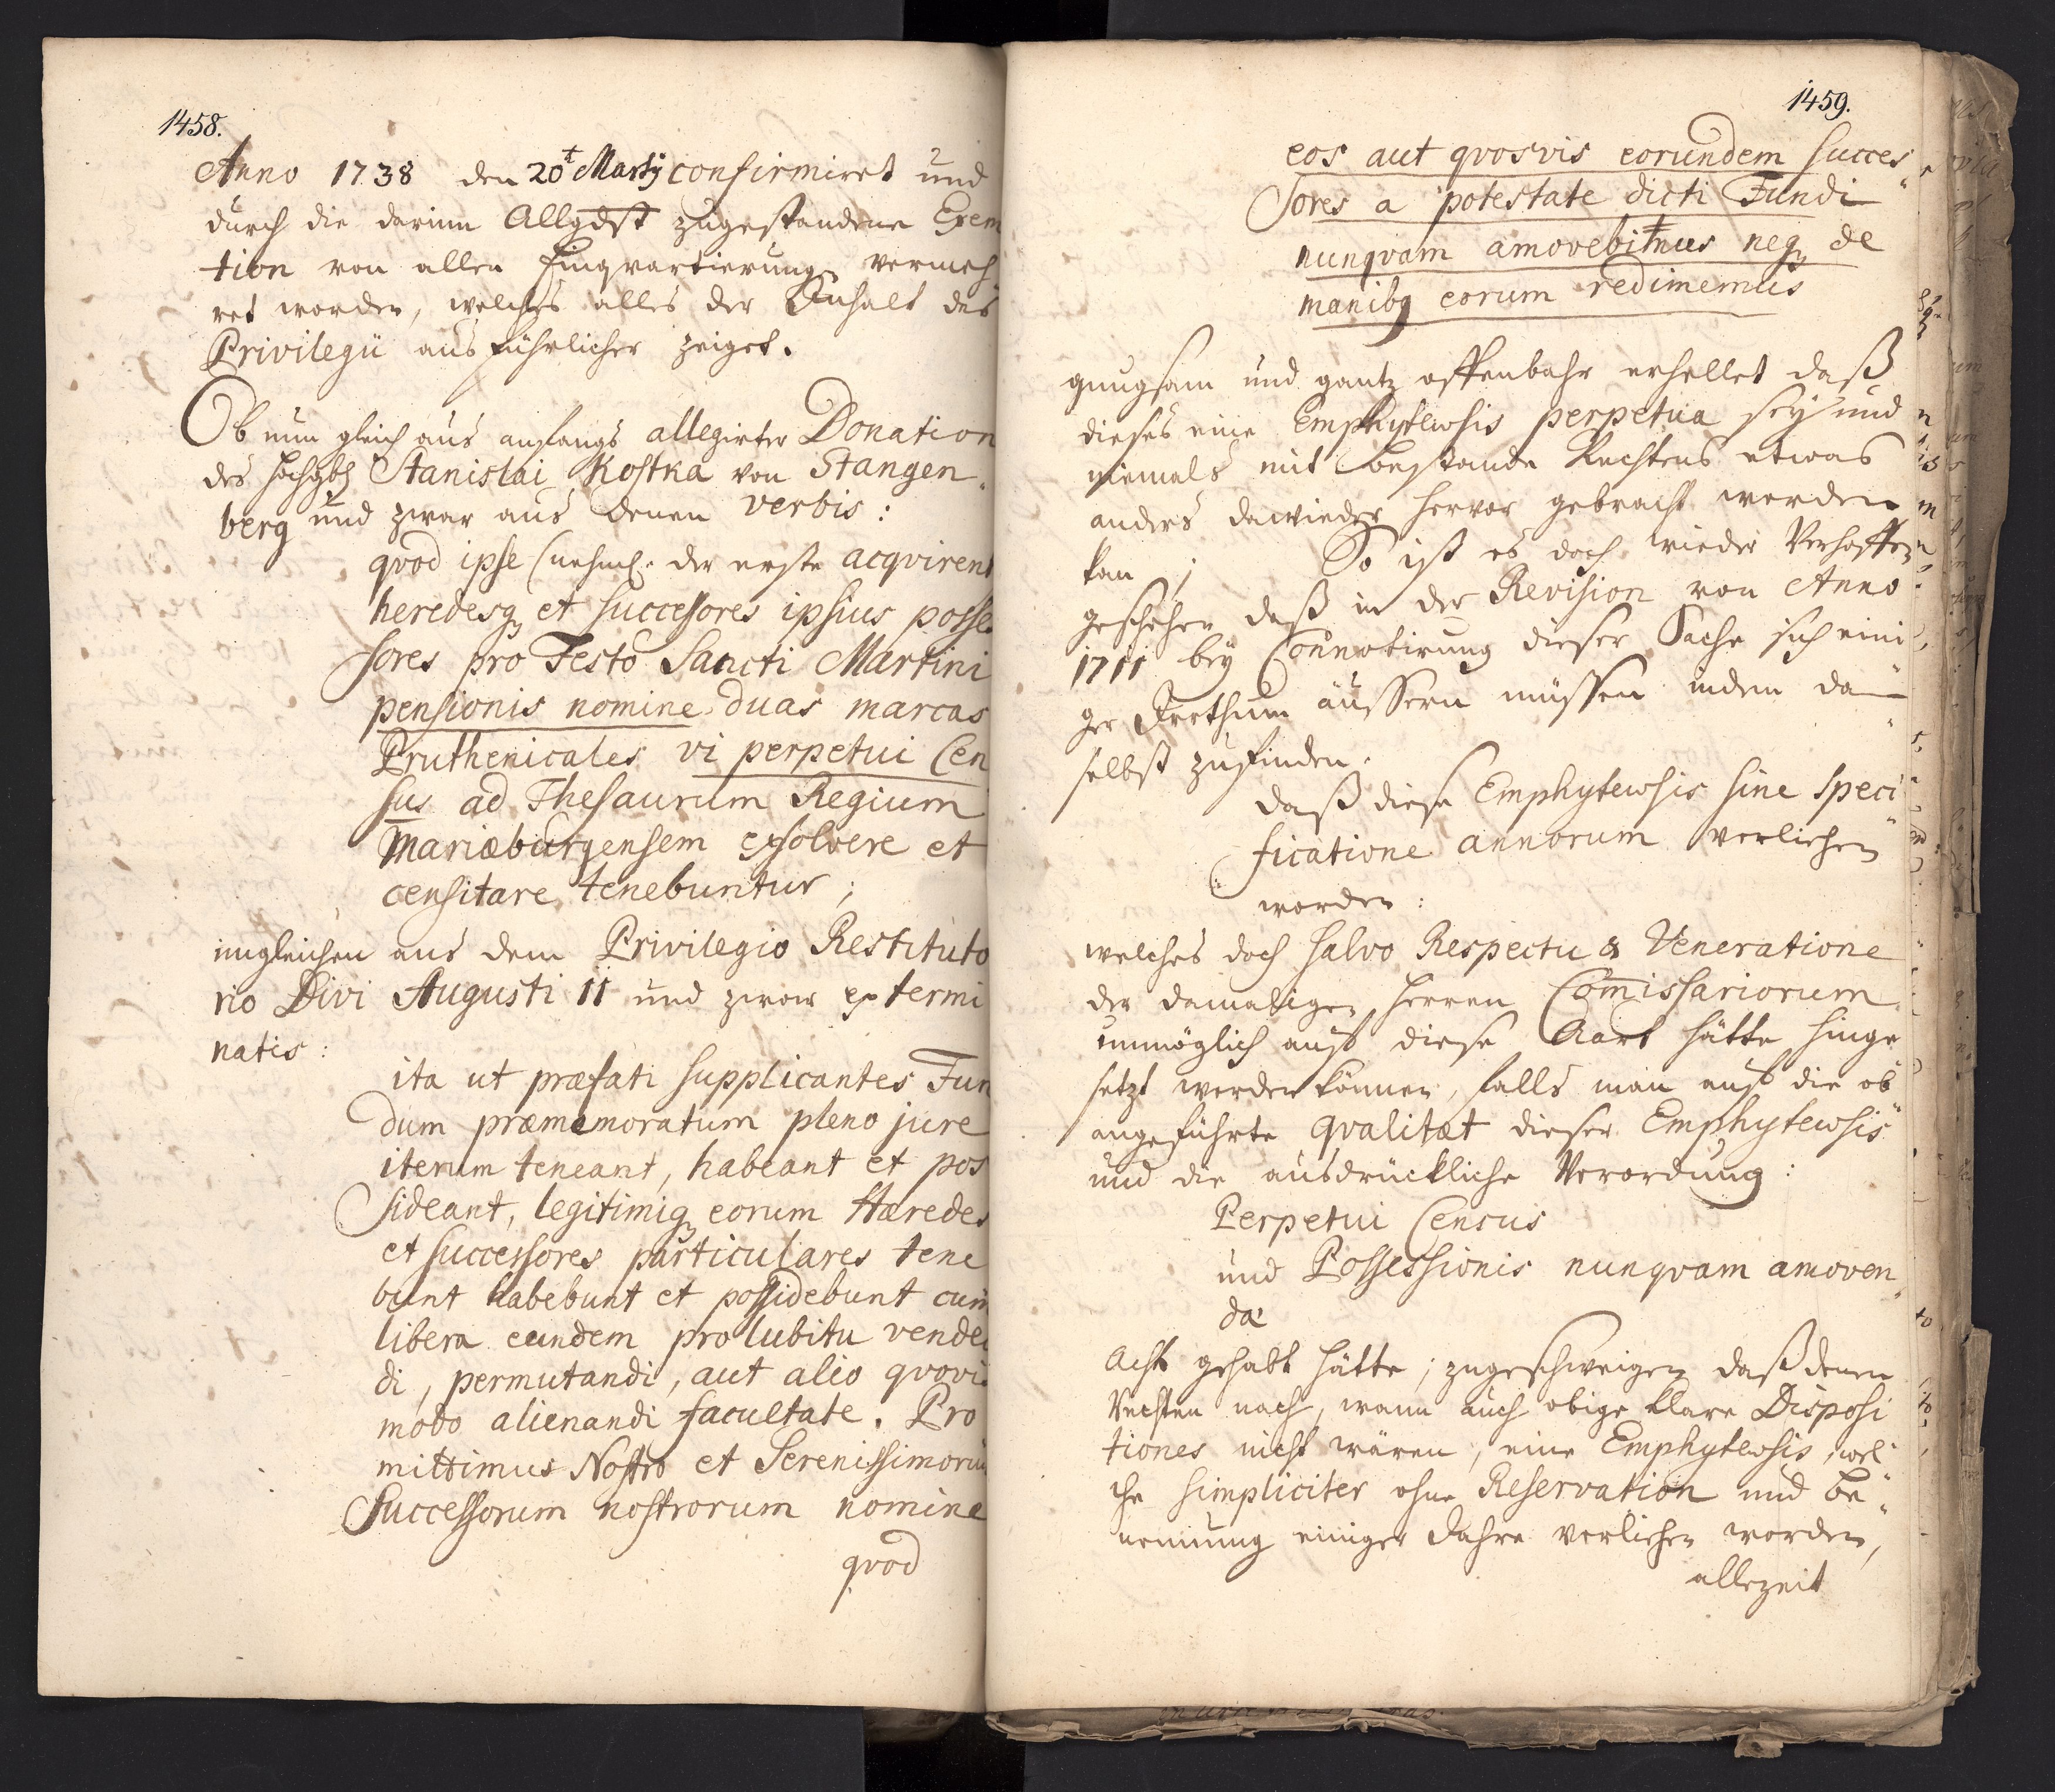 1458.
Anno 1738 den 20t Martÿ confirmiret und
durch die darinn Allgdst zugestandene Exem
tion von allen Einqvartierungen vermeh
ret worden, welches alles der Inhalt des
Privilegii ausführlicher zeiget.
Ob nun gleich aus anfangs allegirter Donation
des Stanislai Kostka von Stangen„
berg und zwar aus denen verbis:
qvod ipse (nehml. der erste acqvirent
heredesq et successores ipsius posse
sores pro Festo Sancti Martini
pensionis nomine duas marcas
Pruthenicales vi perpetui Cen
sus ad Thesaurum Regium
Mariæburgensem exsolvere et
censitare tenebuntur;
imgleichen aus dem Privilegio Restituto
rio Divi Augusti II und zwar ex termi
natis:
ita ut præfati supplicantes Fun
dum præmemoratum pleno jure
iterum teneant, habeant et pos
sideant, legitimiq eorum Hæredes
et successores particulares tene
bunt habebunt et possidebunt cum
libera eundem pro lubitu venden
di, permutandi, aut alio qvovis
modo alienandi facultate. Pro
mittimus Nostro et Serenissimorum
Successorum nostrorum nomine
qvod
1459.
eos aut qvosvis eorundem Succes„
sores a potestate dicti Fundi
nunqvam amovebimus neq de
manibq eorum redimemus
gnugsam und gantz offenbahr erhellet daß
dieses eine Emphytewsis perpetua seÿ und
niemals mit Bestande Rechtens etwas
anders dawieder hervor gebracht werden
kan; So ist es doch wieder Verhoffen
geschehen daß in der Revision von Anno
1711 beÿ Connotirung dieser Sache sich eini„
ger Irrthum äussern müssen indem da„
selbst zufinden.
daß diese Emphytewsis sine speci„
ficatione annorum verliehen
worden:
welches doch salvo Respectu & Veneratione
der damaligen Herren Comissariorum
unmöglich auf diese Aart hätte hinge
setzt werden können, falls man auf die ob„
angeführte qvalitæt dieser Emphytewsis
und die ausdrückliche Verordung:
Perpetui Census
und Possessionis nunqvam amoven„
dæ
Acht gehabt hätte; zugeschweigen daß denen
Rechten nach, wann auch obige klare Disposi
tiones nicht wären, eine Emphytewsis, wel„
che simpliciter ohne Reservation und Be„
nennung einiger Jahre verliehen worden,
allezeit